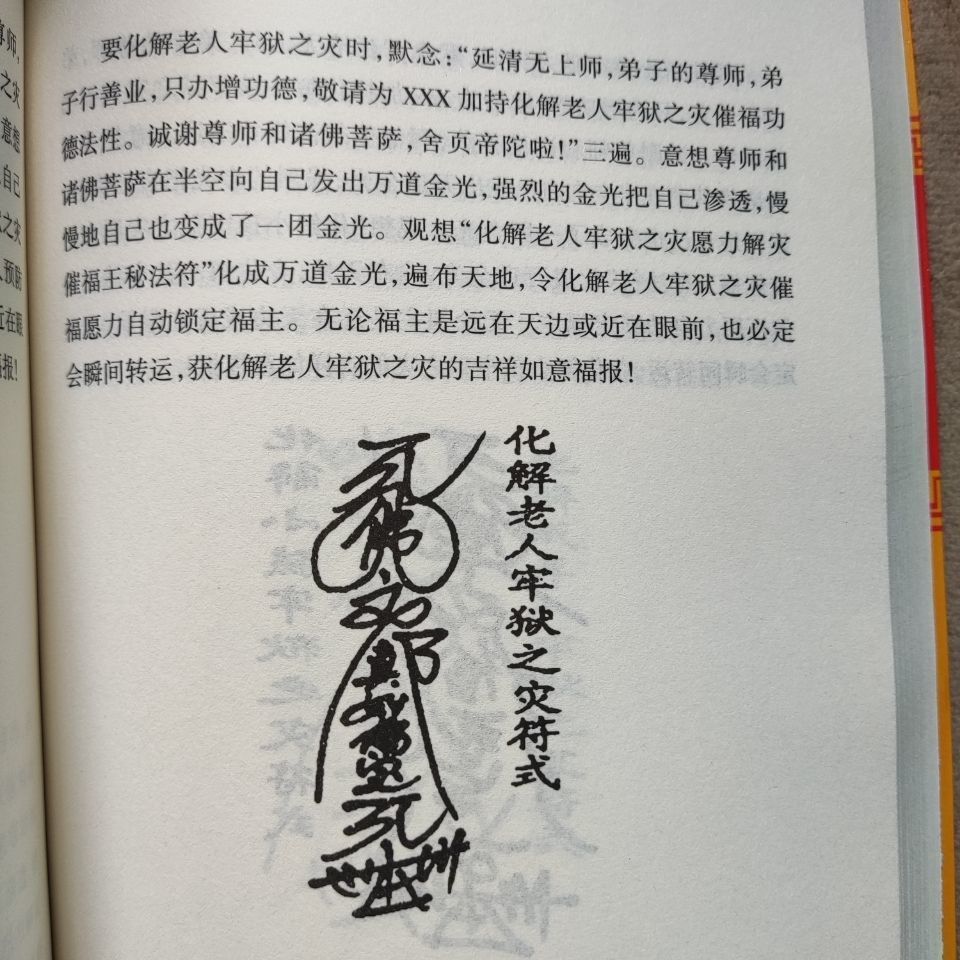 尊师,
之灾
意想
自己
之灾
预防
近在眼
福报!
要化解老人牢狱之灾时,默念:“延清无上师,弟子的尊师,弟
子行善业,只办增功德,敬请为 XXX 加持化解老人牢狱之灾催福功
德法性。诚谢尊师和诸佛菩萨,舍页帝陀啦!”三遍。意想尊师和
诸佛菩萨在半空向自己发出万道金光,强烈的金光把自己渗透,慢
慢地自己也变成了一团金光。观想“化解老人牢狱之灾愿力解灾
催福王秘法符”化成万道金光,遍布天地,令化解老人牢狱之灾催
福愿力自动锁定福主。无论福主是远在天边或近在眼前,也必定
会瞬间转运,获化解老人牢狱之灾的吉祥如意福报!
化解老人牢狱之灾符式